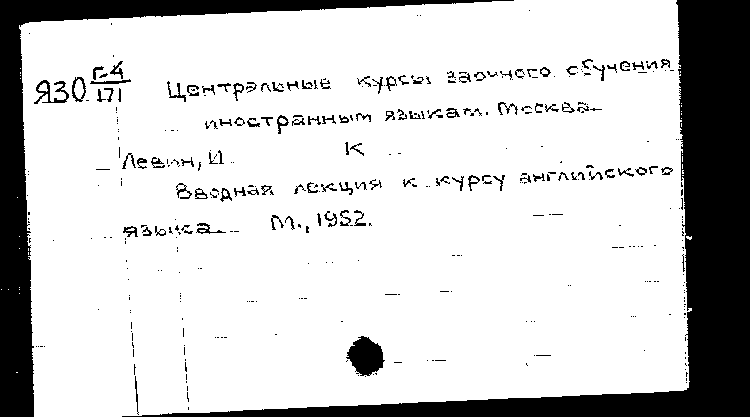 Я30 Г-4/171 Центральные курсы заочного обучения
иностранным языкам. Москва.
Левин, И. К
Вводная лекция к курсу английского
языка. М., 1952.